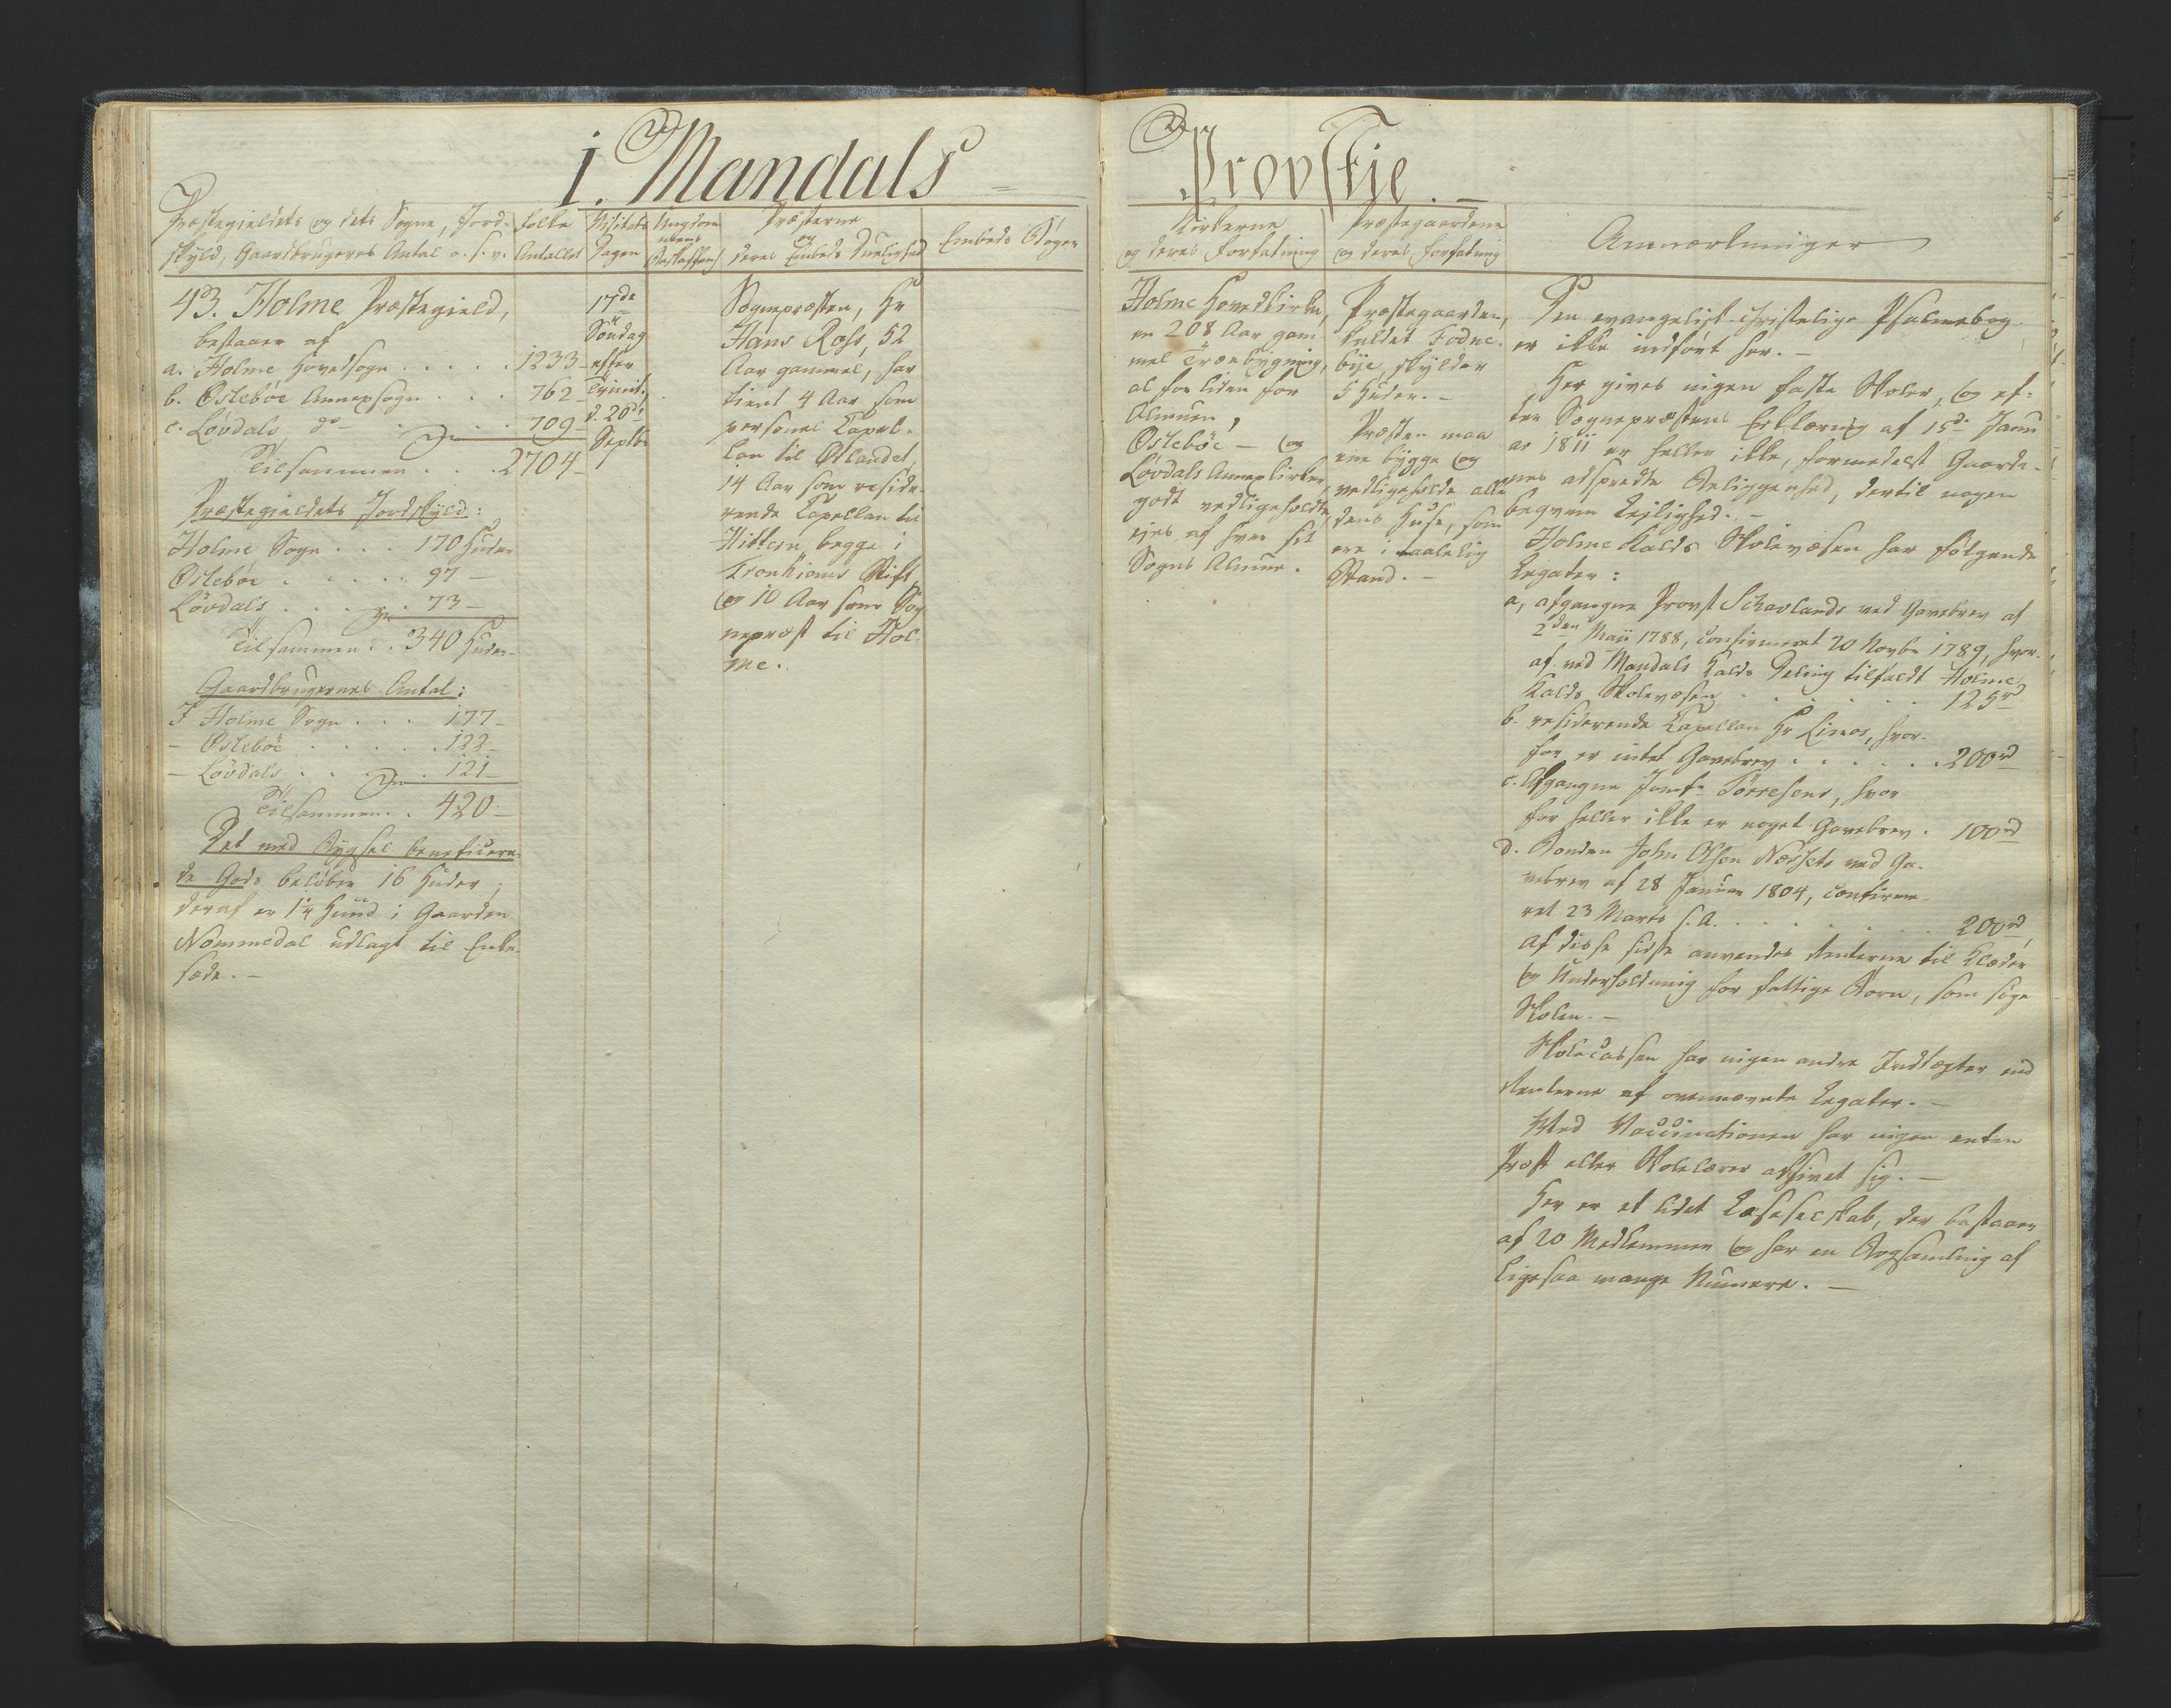 i. Mandals
Præstegieldets og dets Sogne, Jord-
skyld, Gaardbrugeres Antal o. s. v.
Folke
Antallet
Visitats
Dagen
Ungdom
mens
Beskaffenh
Præsterne
og
deres Embeds Duelighed
Embeds Bøger
43. Holme Præstegield,
bestaaer af
a. Holme Hovedsogn . . . . . 1233 -
b. Ösleböe Annexsogn . . . 762 -
c. Lövdals do . . . . 709 -
Tilsammen . . . 2704 -
Præstegieldets Jordskyld:
Holme Sogn . . . 170 Huder
Öslebøe . . . . . 97 -
Lövdals . . . . 73 -
Tilsammen . . 340 Huder.
Gaardbrugernes Antal:
I Holme Sogn . . . 177 -
- Öslebøe . . . . . 122 -
- Lövdals . . . . 121 -
Tilsammen . . 420 -
Det med Bygsel beneficere-
de Gods beløber 16 Huder;
deraf er 1 1/4 Hund i Gaarden
Nommedal udlagt til Enke-
sæde. -
17de
Söndag
efter
Trinit.,
d. 20de
Septbr
Sognepræsten, Hr
Hans Ross, 52
Aar gammel, har
tient 4 Aar som
personel Capel-
lan til Ørlandet,
14 Aar som reside-
rende Capellan til
Hitteren begge i
Tronhiems Stift,
og 10 Aar som Sog-
nepræst til Hol-
me.
Provstie. -
Kirkerne
og deres Forfatning
Præstegaardene
og deres Forfatning
Anmærkninger
Holme Hovedkirke,
en 208 Aar gam-
mel Træebygning,
al for liden for
Almuen,
Öslebøe - og
Lövdals Annexkirker,
godt vedligeholdte,
ejes af hver sit
Sogns Almue.
Præstegaarden,
kaldet Fodne-
bye, skylder
5 Huder. -
Præsten maa
ene bygge og
vedligeholde alle
dens Huse, som
ere i taalelig
Stand. -
Den evangelisk-christelige Psalmebog
er ikke indført her. -
Her gives ingen faste Skoler, og ef-
ter Sognepræstens Erklæring af 15de Janu
ar 1811 er heller ikke, formedelst Gaarde-
nes adspredte Beliggenhed, dertil nogen
beqvem Lejlighed. -
Holme Kalds Skolevæsen har følgende
Legater:
a, afgangne Provst Schavlands ved Gavebrev af
2den Maii 1788, confirmeret 20 Novbr 1789, hvor-
af ved Mandals Kalds Deling tilfaldt Holme
Kalds Skolevæsen . . . . . . 125 rd
b. residerende Capellan Hr Limos, hvor-
for er intet Gavebrev . . . . . . 200 rd
c. Afgangne Jomfr Törresens, hvor-
for heller ikke er noget Gavebrev . 100 rd
d. Bonden John Olsen Næssets ved Ga-
vebrev af 28 Januar 1804, confirme-
ret 23 Marts s. A. . . . . . . . 200 rd,
af disse sidste anvendes Renterne til Klæder
og Underholdning for fattige Börn, som søge
Skolen. -
Skolecassen har ingen andre Indtægter end
Renterne af ovennævnte Legater. -
Med Vaccinationen har ingen enten
Præst eller Skolelærer afgivet sig. -
Her er et lidet Læseselskab, der bestaaer
af 20 Medlemmer og har en Bogsamling af
ligesaa mange Numere. -